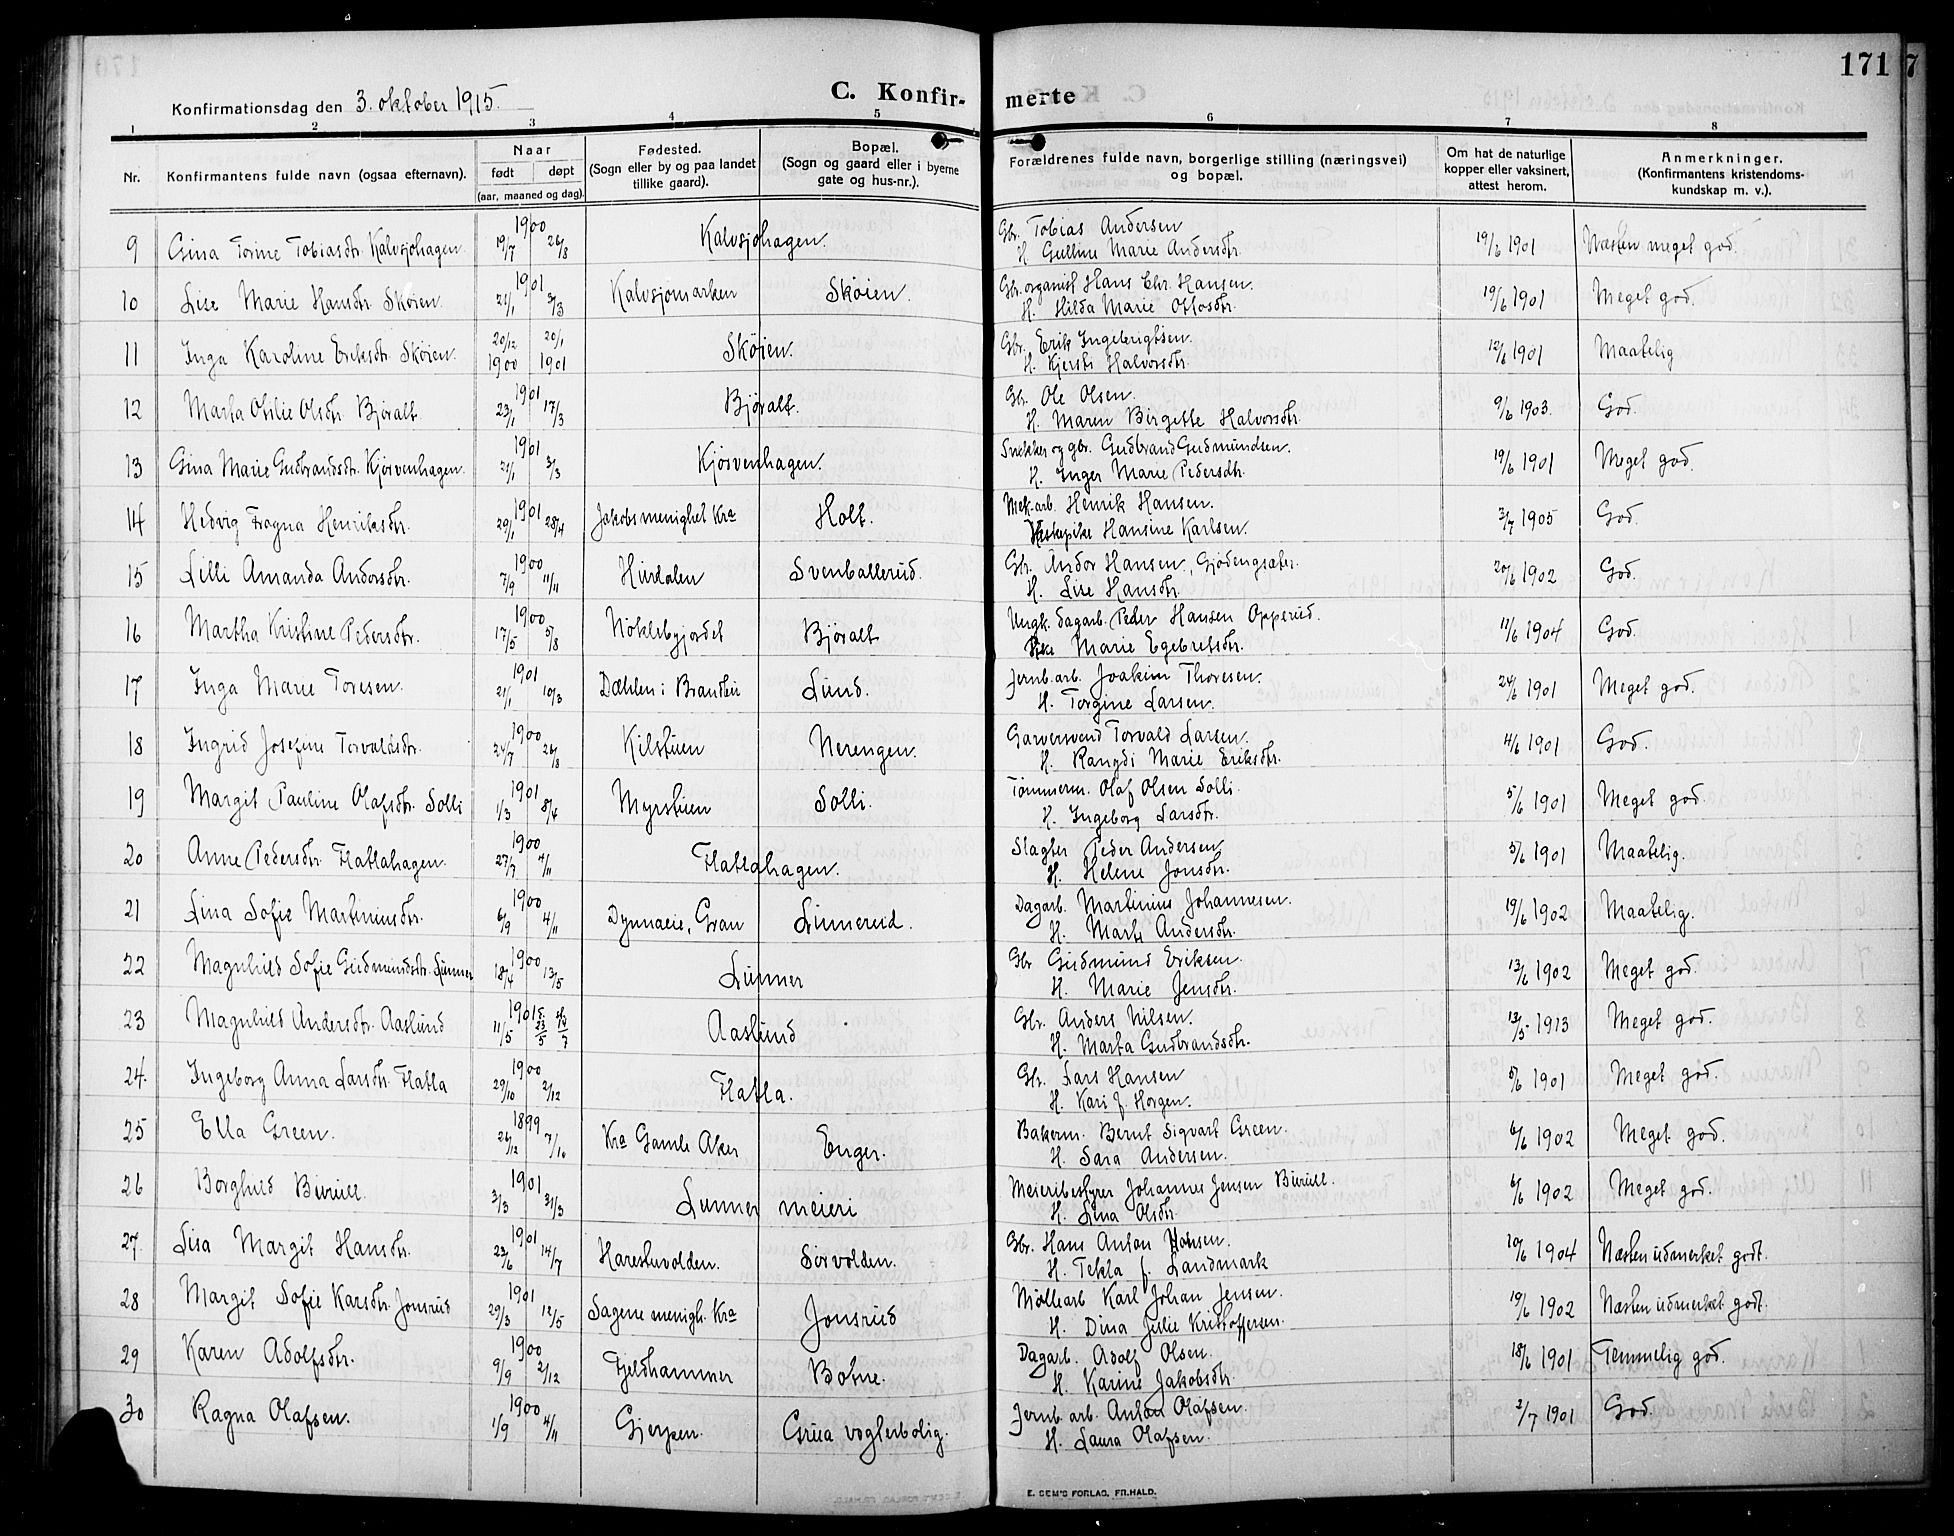 171
Konfirmationsdag den 3. oktober 1915.
C. Konfir-merte
1 2 3 4 5 6 7 8
Nr. Konfirmantens fulde navn (ogsaa efternavn). Naar født døpt (aar, maaned og dag). Fødested. (Sogn eller by og paa landet tillike gaard). Bopæl. (Sogn og gaard eller i byerne gate og hus-nr.). Forældrenes fulde navn, borgerlige stilling (næringsvei) og bopæl. Om hat de naturlige kopper eller vaksinert, attest herom. Anmerkninger. (Konfirmantens kristendoms-kundskap m. v.).
9 Gina Torine Tobiasdtr. Kalvsjøhagen 1900 19/7 26/8 Kalvsjøhagen. Gbr. Tobias Andersen 19/6 1901 Næsten meget god.
H. Gulline Marie Andersdtr.
10 Lise Marie Hansdtr. Skøien. 1901 21/1 3/3 Kalvsjømarken Skøien. Gbr. organist Hans Chr. Hansen. 19/6 1901 Meget god.
H. Hilda Marie Ottosdtr.
11 Inga Karoline Eriksdtr. Skøien. 20/12 1900 20/1 1901 Skøien. Gbr. Erik Ingebrigtsen. 12/6 1901 Maatelig
H. Kjersti Halvorsdtr.
12 Marta Otilie Olsdtr. Bjøralt. 1901 23/1 17/3 Bjøralt. Gbr. Ole Olsen. 9/6 1903. God.
H. Maren Birgette Halvorsdtr.
13 Gina Marie Gudbrandsdtr. Kjøsvenhagen. 1901 21/1 3/3 Kjøsvenhagen. Snekker og gbr. Gudbrand Gudmundsen. 19/6 1901 Meget god.
H. Inger Marie Pedersdtr.
14 Hedvig Fragna Henriksdtr. 1901 29/1 28/4 Jakobs menighet Kra Holt. Mek. arb. Henrik Hansen. 3/7 1905 God.
Hansine Karlsen.
15 Lilli Amanda Andorsdtr. 1900 7/9 11/11 Hurdalen Svenballerud. Gbr. Andor Hansen, Gjødengsæter. 20/6 1902 God.
H. Lise Hansdtr.
16 Martha Kristine Pedersdtr. 1900 17/5 5/8 Nøklebyjordet Bjøralt Ungk. dagarb. Peder Hansen Opperud. 11/6 1904 God.
Pike Marie Egebretsdtr.
17 Inga Marie Toresen. 1901 21/1 10/3 Dæhlen i Brandbu Lund. Jernb. arb. Joakim Thoresen. 24/6 1901 Meget god.
H. Torgine Larsen.
18 Ingrid Josefine Torvaldsdtr. 1900 24/7 26/8 Kilstuen Nerengen. Garversvend Torvald Larsen. 4/6 1901 God.
H. Rangdi Marie Eriksdtr.
19 Margit Pauline Olafsdtr. Solli 1901 1/3 8/4 Myrstuen Solli. Tømmerm. Olaf Olsen Solli. 5/6 1901 Meget god.
H. Ingeborg Larsdtr.
20 Anne Pedersdtr. Flatlahagen. 1900 27/7 4/11 Flatlahagen. Slagter Peder Andersen 5/6 1901 Maatelig.
H. Helene Jonsdtr.
21 Lina Sofie Martiniusdtr. 1900 6/9 4/11 Dynnaeie, Gran Linnerud. Dagarb. Martinius Johannesen. 19/6 1902 Maatelig.
H. Marte Andersdtr.
22 Magnhild Sofie Gudmundsdtr. Lunner 1900 18/4 13/5 Lunner Gbr Gudmund Eriksen. 13/6 1902 Meget god.
H. Marie Jensdtr.
23 Magnhild Andersdtr. Aaslund 1901 11/5 Aaslund Gbr. Anders Nilsen. 13/5 1913 Meget god.
H. Marta Gudbrandsdtr.
24. Ingeborg Anna Larsdtr. Flatla 1900 29/10 2/12 Flatla. Gbr. Lars Hansen 5/6 1901 Meget god.
H. Kari f. Horgen.
25 Ella Green. 1899 26/12 7/10 Kra Gamle Aker Enger. Bakerm. Bernt Sigvart Green. 6/6 1902 Meget god.
H. Sara Andersen.
26 Borghild Buruld. 1901 3/3 31/3 Lunner meieri Meieribestyrer Johannes Jensen Buruld. 6/6 1902 Meget god.
H. Lina Olsdtr.
27 Lisa Margit Hansdtr. 1901 23/6 14/7 Harestuvolden. Sørvolden. Gbr. Hans Anton Hansen. 10/6 1904 Næsten udmerket godt.
H. Tekla f. Landmark
28 Margit Sofie Karlsdtr. Jonsrud 1901 29/3 12/5 Sagene menigh. Kra Jonsrud Møllearb Karl Johan Jensen. 19/6 1902 Næsten udmerket godt.
H. Dina Julie Kristoffersen.
29 Karen Adolfsdtr. 1900 9/9 2/12 Fjeldhammer Botne. Dagarb. Adolf Olsen. 18/6 1901 Temmelig god.
H. Karine Jakobsdtr.
30 Ragna Olafsen. 1900 1/9 4/11 Gjerpen. Grua vogterbolig. Jernb. arb. Anton Olafsen. 2/7 1901 God.
H. Laura Olafsen.
E. SEM'S FORLAG, FR.HALD.